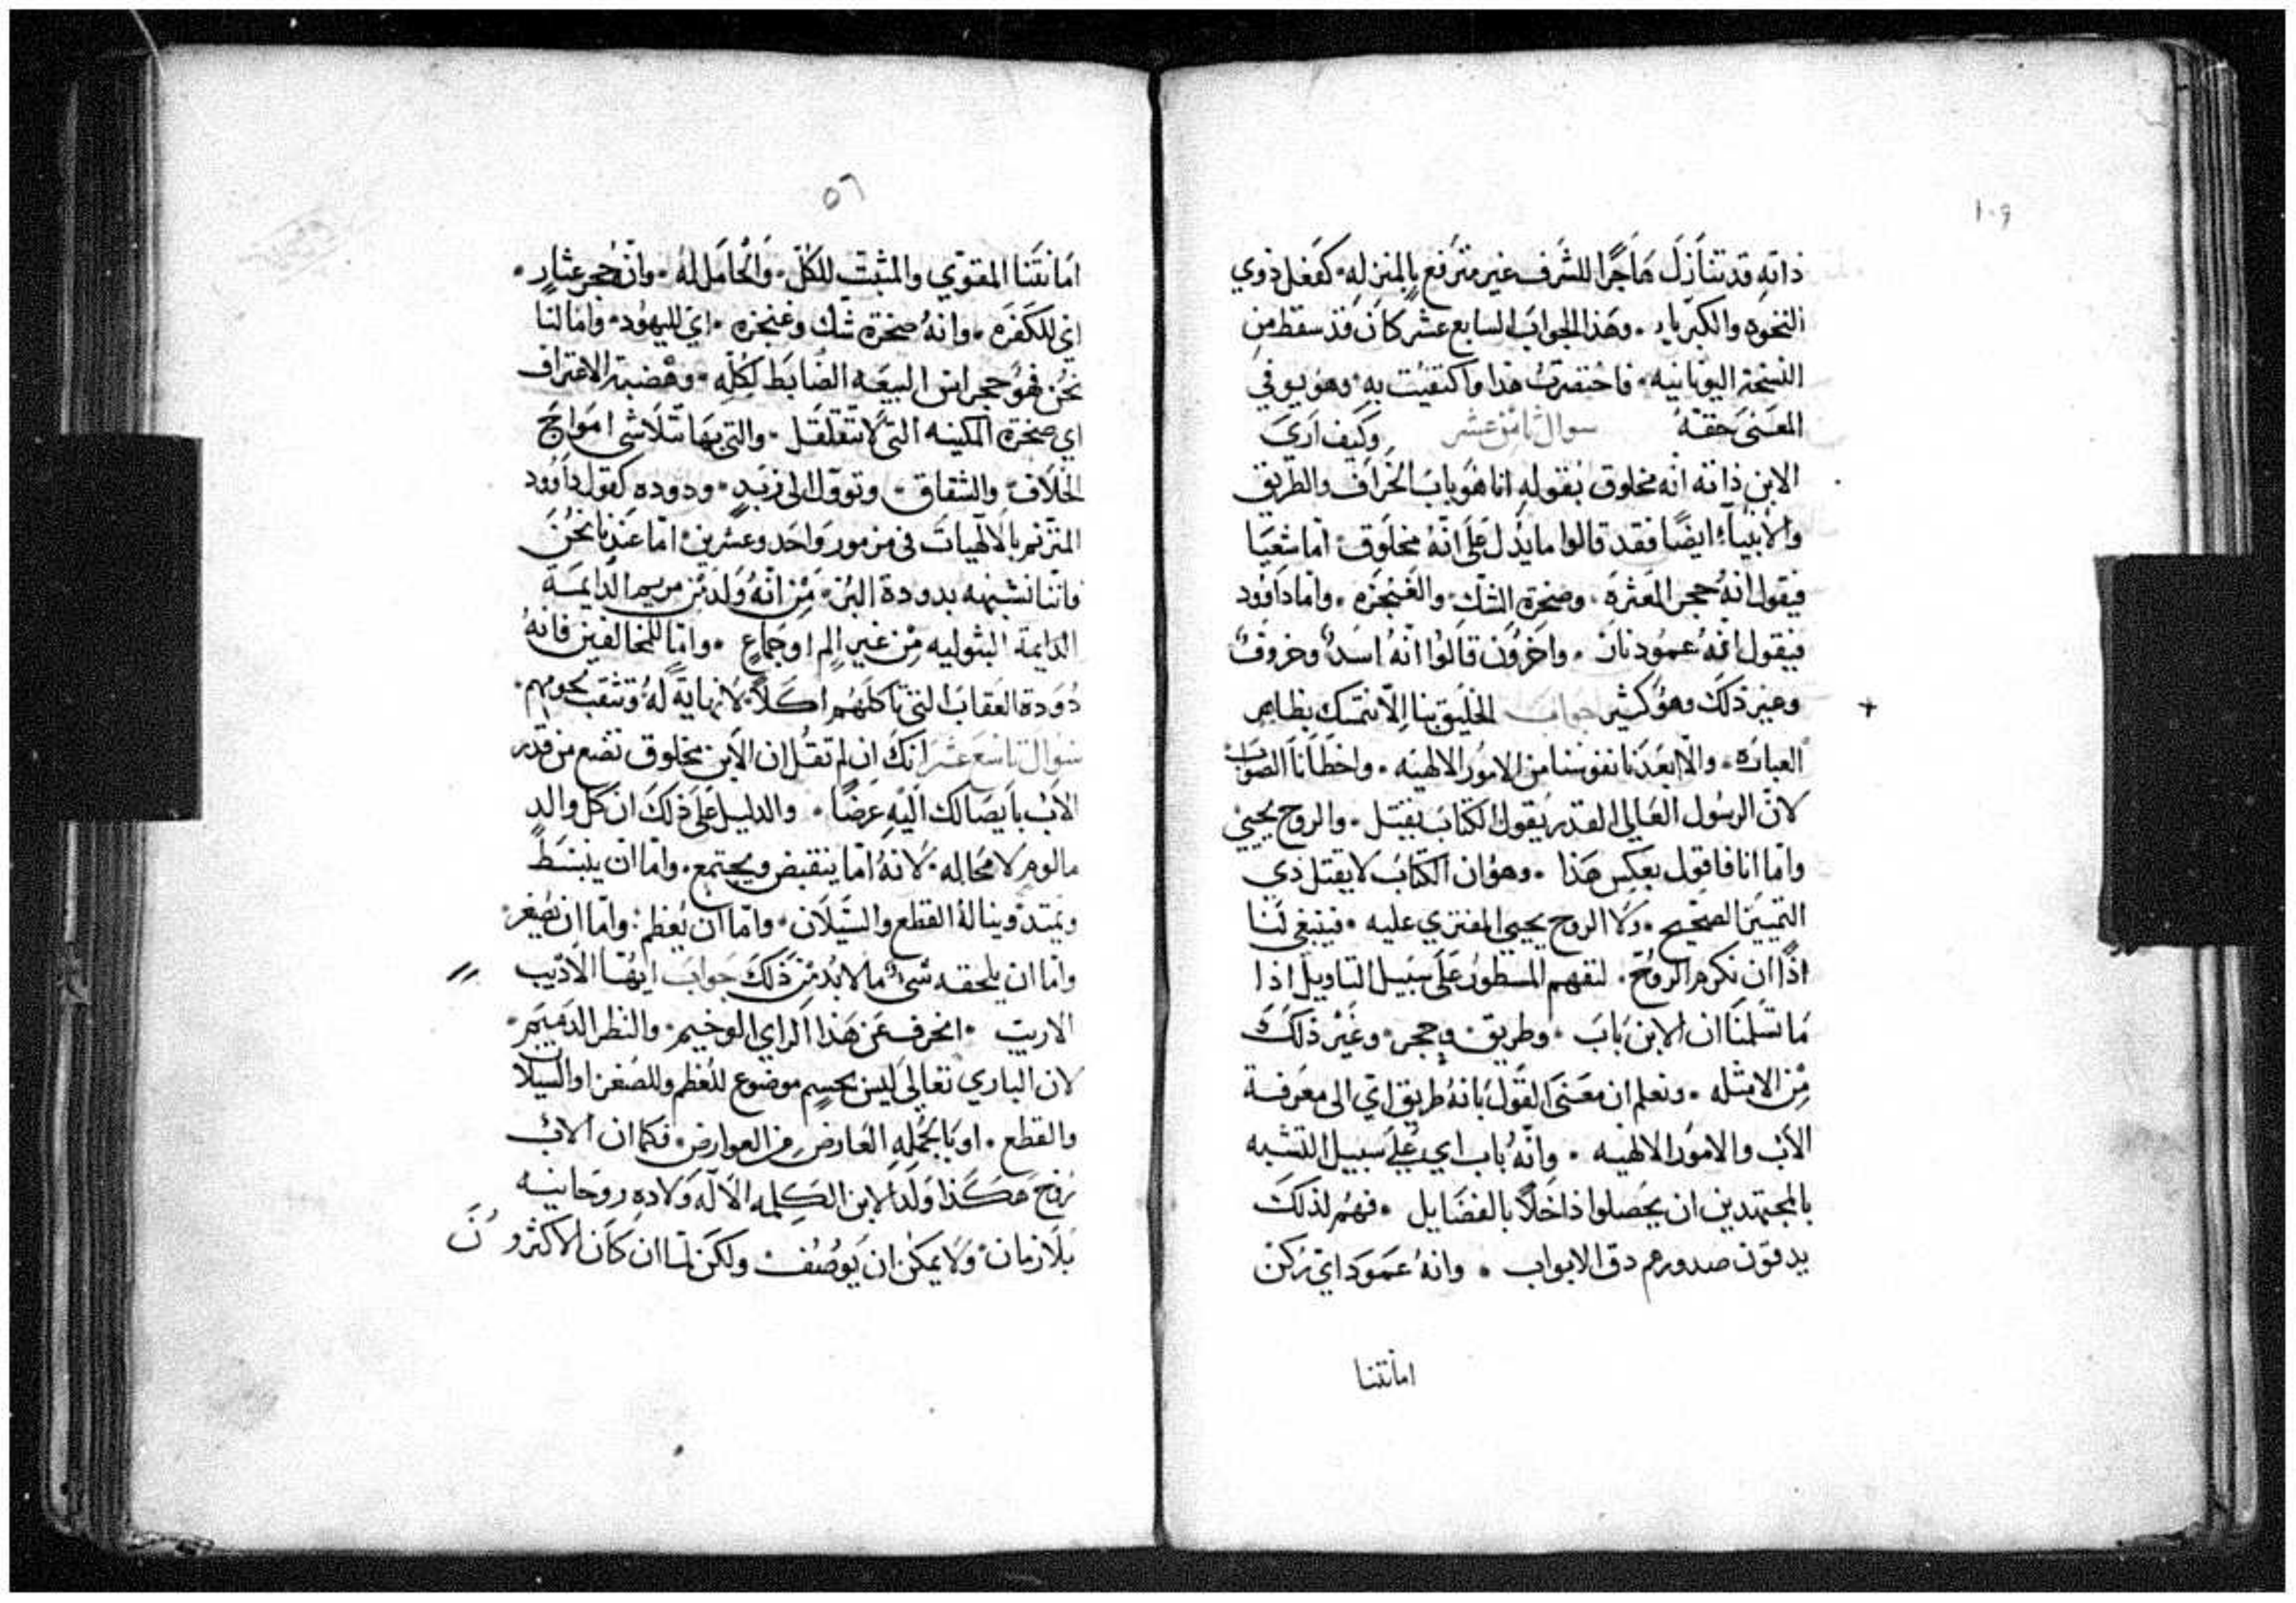 ١٠٩
ذاته قد تنازل هاجرًا للشرف غير مترفع بالمنزله كفعل ذوي
النخوه والكبرياء وهذا الجواب السابع عشر كان قد سقط من
النسخة اليونانيه فاختصرت هذا واكتفيت به وهو يوفي
المعنى حقه سوال ثامن عشر وكيف اري
الابن ذاته انه مخلوق بقوله انا هو باب الخراف والطريق
والانبياء ايضًا فقد قالوا ما يدل على انه مخلوق اما شعيا
فيقول انه حجر العثرة وصخرة الشك والغنجزه واما داوود
فيقول انه عمود نار واخرون قالوا انه اسد وخروف
وغير ذلك وهو كثير جواب الخليق بنا الا نتمسك بظاهر
العبارة والا ابعدنا نفوسنا من الامور الالهيه واخطأنا الصواب
لان الرسول العالي القدر يقول الكتاب يقتل والروح يحيي
واما انا فاقول بعكس هذا وهو ان الكتاب لا يقتل ذي
التمييز الصحيح ولا الروح يحيي المفتري عليه فينبغي لنا
اذًا ان نكرم الروح لتفهم المسطور على سبيل التاويل اذا
ما تسلمنا ان الابن باب وطريق وحجر وغير ذلك
من الامثله ونعلم ان معنى القول بانه طريق اي الى معرفة
الاب والامور الالهيه وانه باب اي على سبيل التشبه
بالمجتهدين ان يحصلوا داخلًا بالفضايل فهم لذلك
يدقون صدورهم دق الابواب وانه عمود اي ركن
امانتنا
٥٦
امانتنا المقوي والمثبت للكل والحامل له وانه حجر عثار
اي للكفره وانه صخرة شك وغنجزه اي لليهود واما لنا
نحن فهو حجر اس البيعه الضابط لكله وهضبة الاعتراف
اي صخرة المكينه التي لا تتقلقل والتي بها تتلاشى امواج
الخلاف والشقاق وتوول الى زبد ودوده كقول داوود
المترنم بالالهيات في مزمور واحد وعشرين اما عندنا نحن
فاننا نشبهه بدودة البز من انه ولد من مريم الدايمة
الدايمة البتوليه من غير الم او جماع واما للمخالفين فانه
دودة العقاب التي تاكلهم اكلًا لا نهاية له وتثقب لحومهم
سوال تاسع عشر انك ان لم تقل ان الابن مخلوق تضع من قدر
الاب بايصالك اليه عرضًا والدليل على ذلك ان كل والد
مالوم لا محاله لانه اما ينقبض ويجتمع واما ان ينبسط
ويمتد ويناله القطع والسيلان واما ان يعظم واما ان يصغر
واما ان يلحقه شي ما لا بد من ذلك جواب ايها الاديب
الاريب انحرف عن هذا الراي الوخيم والنظر الدميم
لان الباري تعالى ليس بجسم موضوع للعظم وللصغر او السيلان
والقطع او بالجمله العارض من العوارض فكما ان الاب
روح هكذا ولد الابن الكلمه الاله ولاده روحانيه
بلا زمان ولا يمكن ان يوصف ولكن لما ان كان الاكثرون